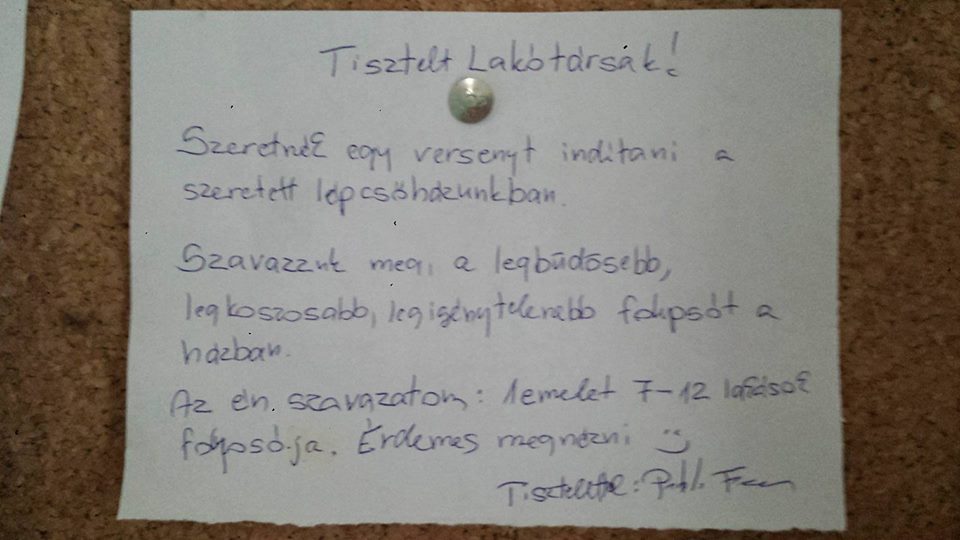 Tisztelt Lakótársak!
Szeretnék egy versenyt inditani a
szeretett lépcsőházunkban.
Szavazzuk meg, a legbüdösebb,
legkoszosabb, legigénytelenebb folyosót a
házban.
Az én szavazatom: 1 emelet 7-12 lakások
folyosója. Érdemes megnézni :)
Tisztelettel: